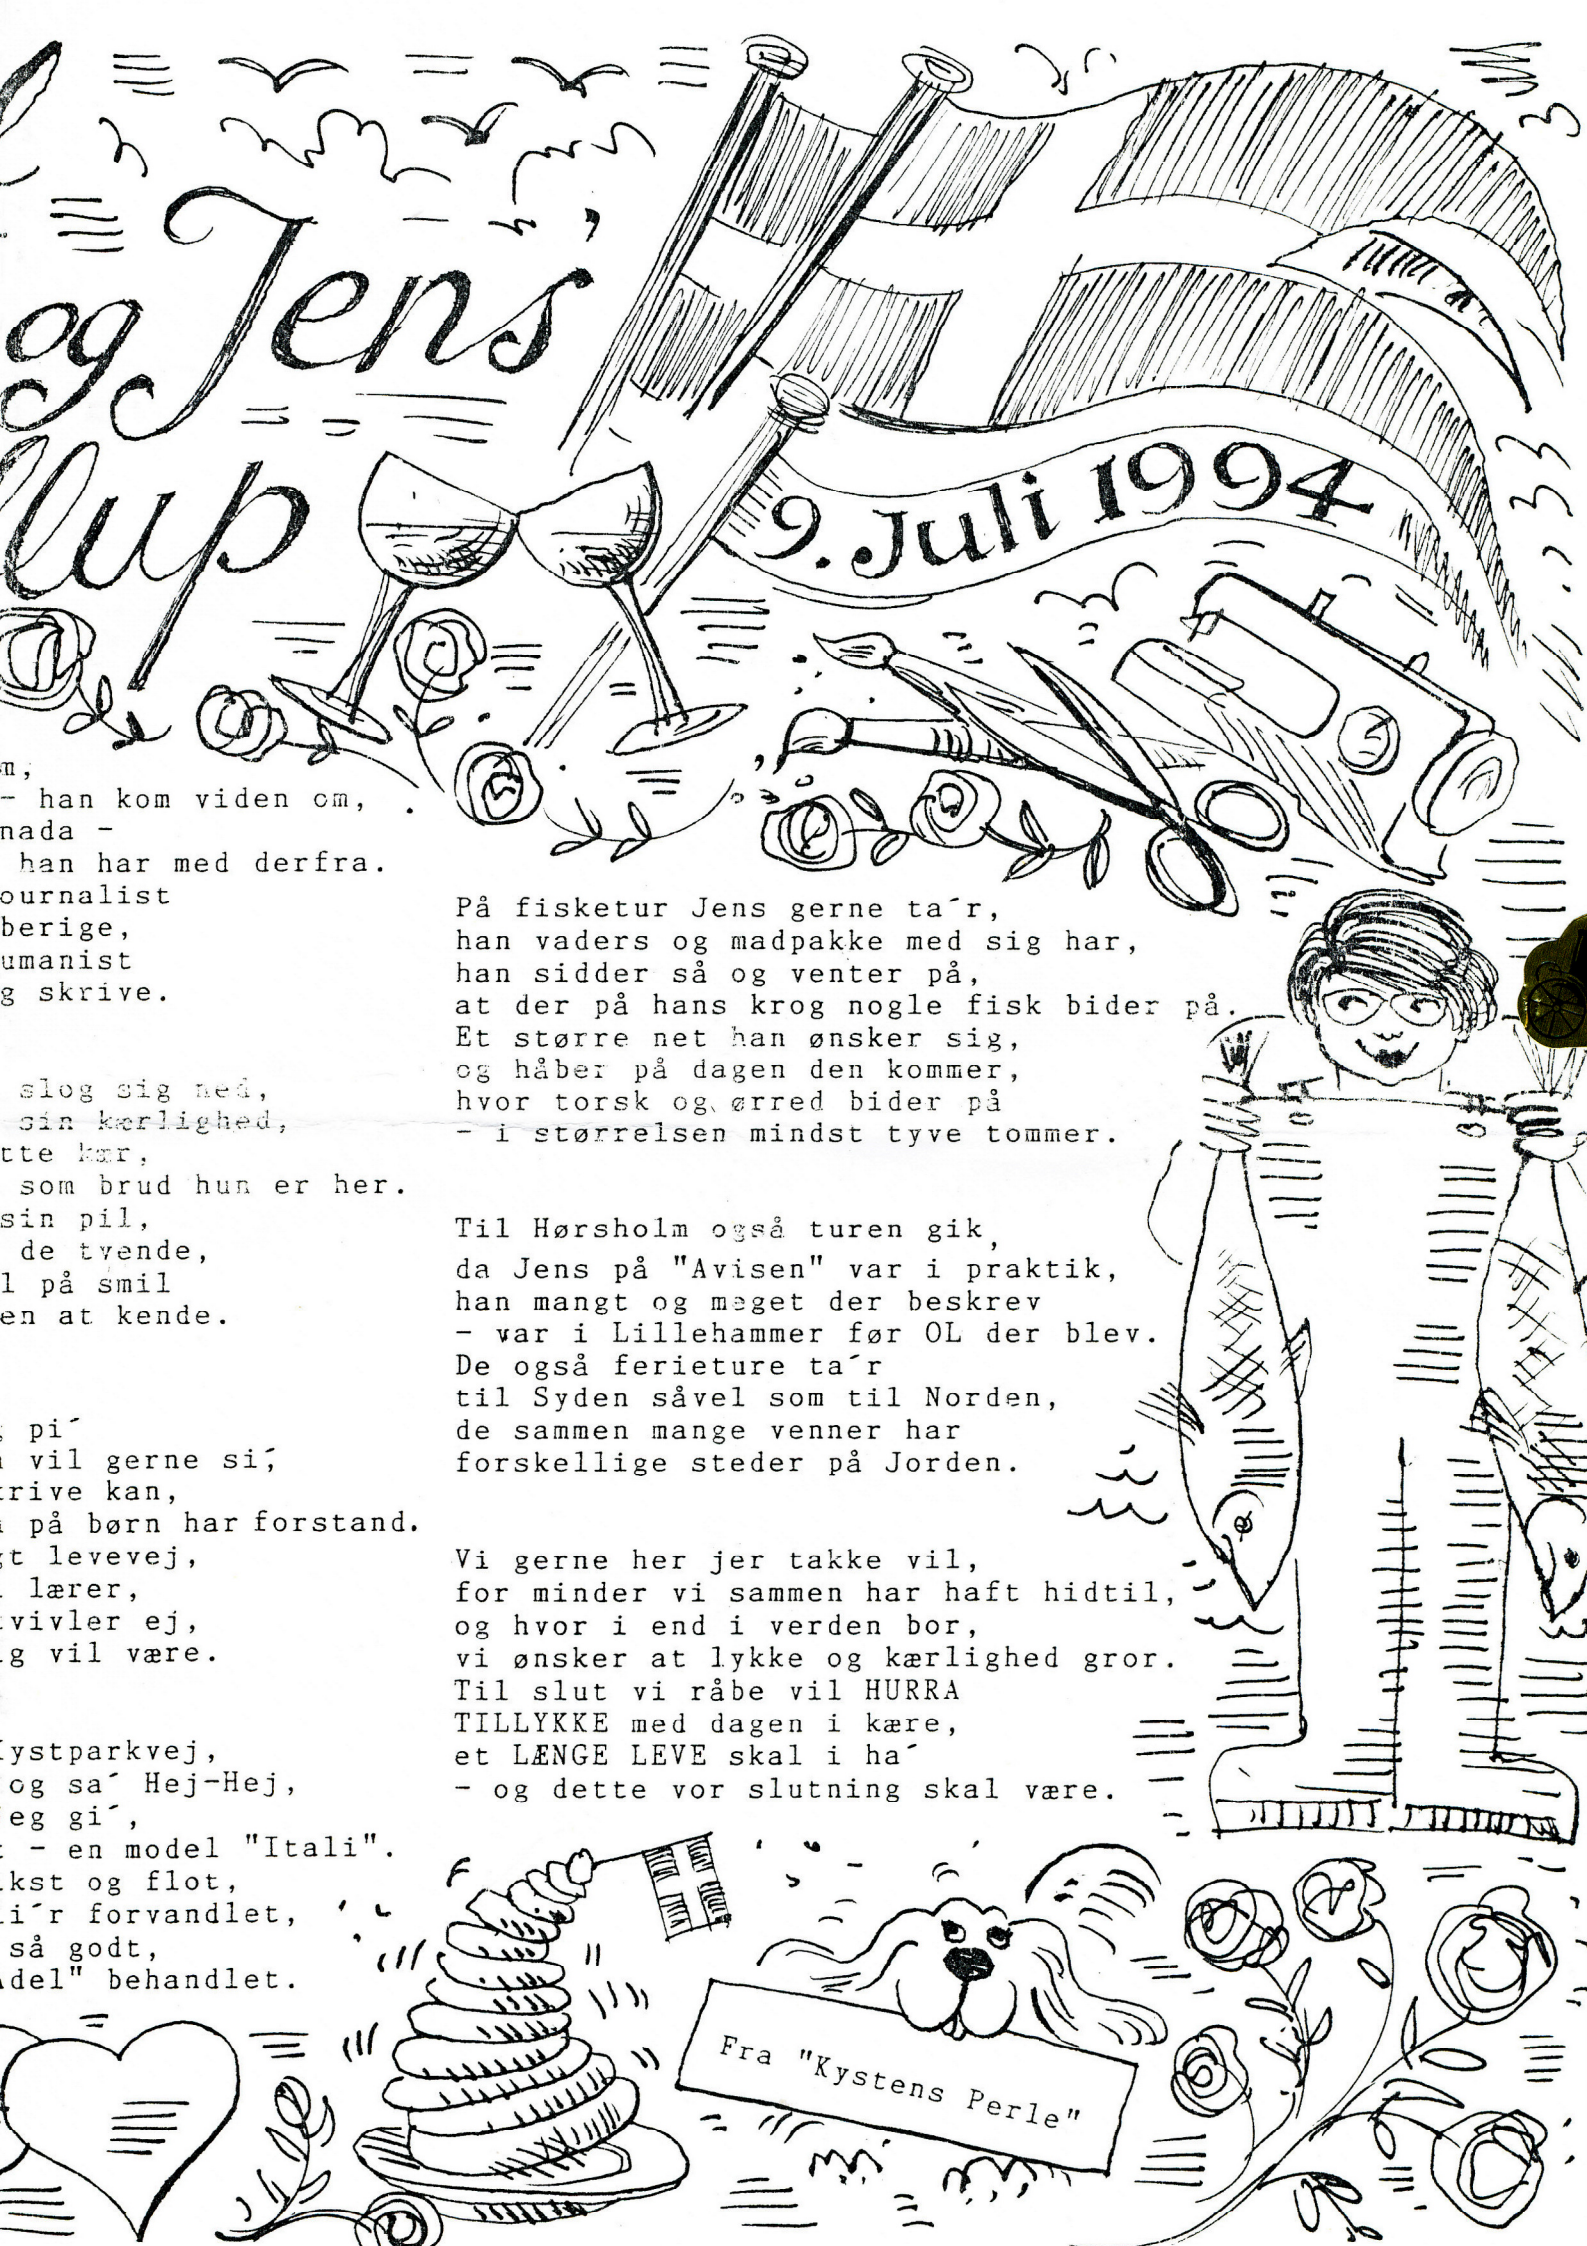 og Jens'
llup
9. Juli 1994
m,
- han kom viden om,
nada -
han har med derfra.
ournalist
berige,
umanist
g skrive.
slog sig ned,
sin kærlighed,
tte kær,
som brud hun er her.
sin pil,
de tvende,
l på smil
en at kende.
g pi´
vil gerne si´,
rive kan,
på børn har forstand.
gt levevej,
lærer,
tvivler ej,
ig vil være.
Kystparkvej,
og sa´ Hej-Hej,
jeg gi´,
- en model "Itali".
kst og flot,
li´r forvandlet,
så godt,
Adel" behandlet.
På fisketur Jens gerne ta´r,
han vaders og madpakke med sig har,
han sidder så og venter på,
at der på hans krog nogle fisk bider på.
Et større net han ønsker sig,
og håber på dagen den kommer,
hvor torsk og ørred bider på
- i størrelsen mindst tyve tommer.
Til Hørsholm også turen gik,
da Jens på "Avisen" var i praktik,
han mangt og meget der beskrev
- var i Lillehammer før OL der blev.
De også ferieture ta´r
til Syden såvel som til Norden,
de sammen mange venner har
forskellige steder på Jorden.
Vi gerne her jer takke vil,
for minder vi sammen har haft hidtil,
og hvor i end i verden bor,
vi ønsker at lykke og kærlighed gror.
Til slut vi råbe vil HURRA
TILLYKKE med dagen i kære,
et LÆNGE LEVE skal i ha´
- og dette vor slutning skal være.
Fra "Kystens Perle"